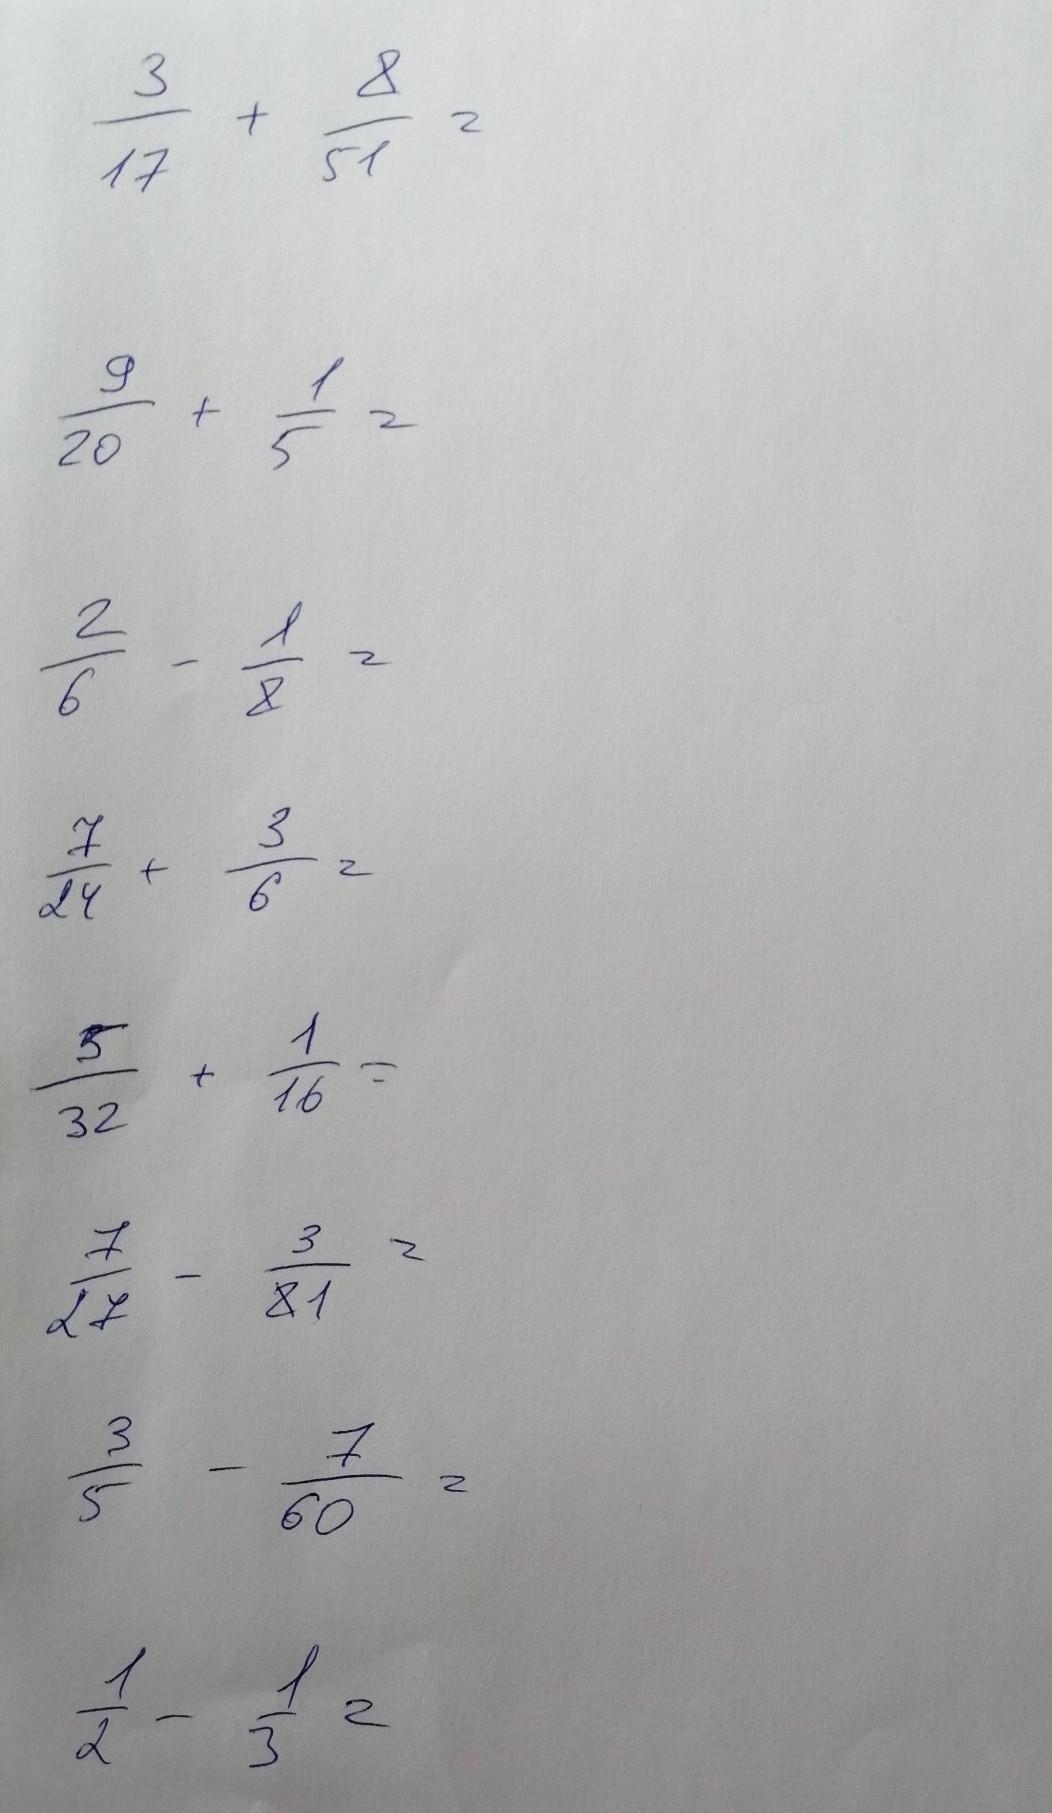 3/17 + 8/51 =
9/20 + 1/5 =
2/6 - 1/8 =
7/24 + 3/6 =
5/32 + 1/16 =
7/27 - 3/81 =
3/5 - 7/60 =
1/2 - 1/3 =